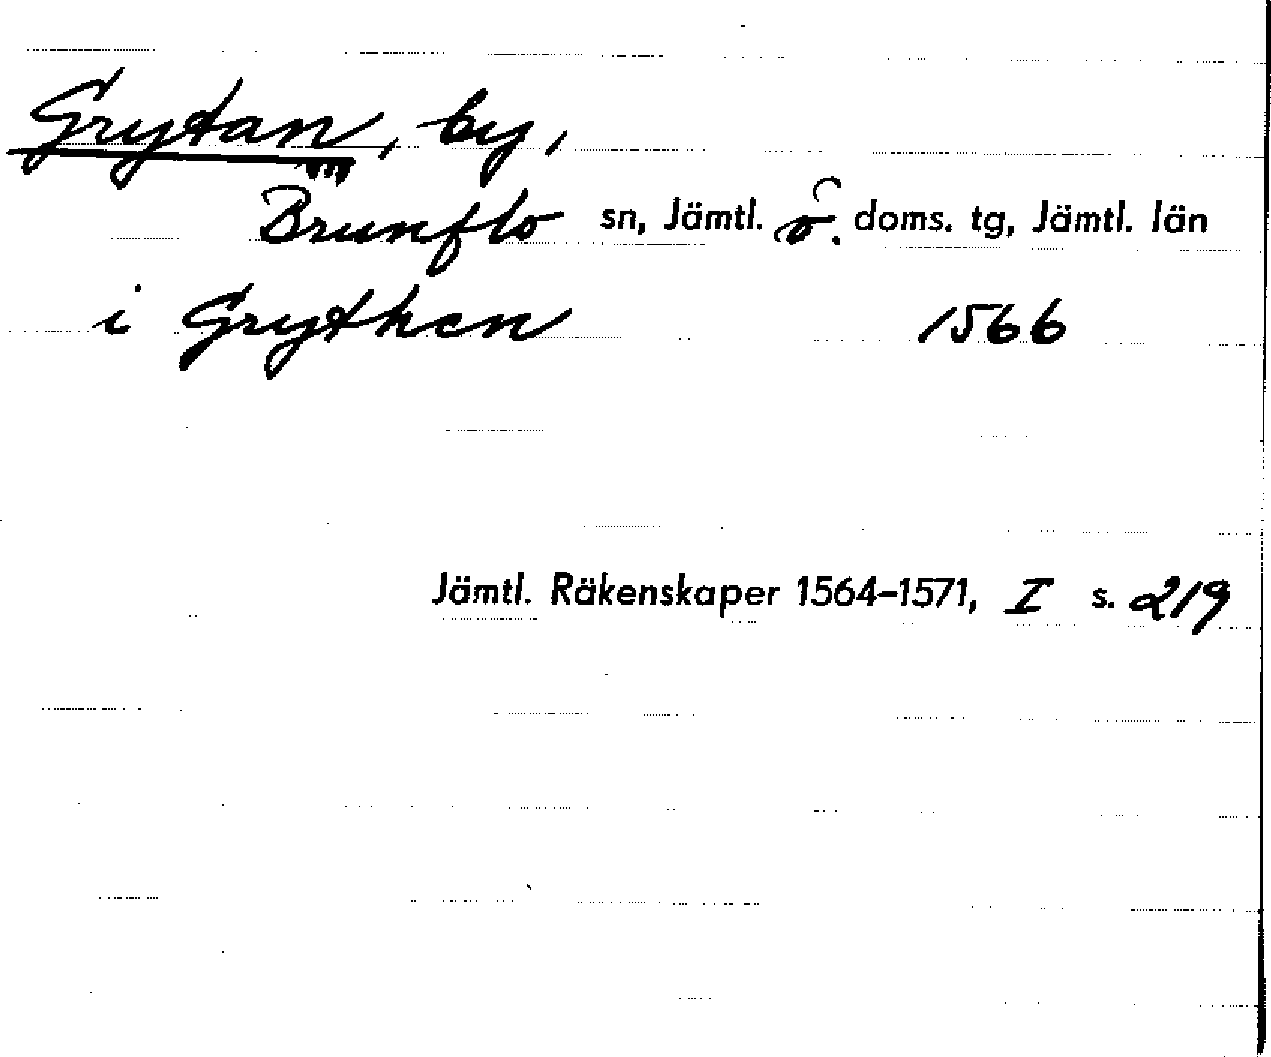 Grytan, by,
Brunflo sn, Jämtl. ö. doms. tg, Jämtl. län
i Grythen 1566
Jämtl. Räkenskaper 1564-1571, I s. 219